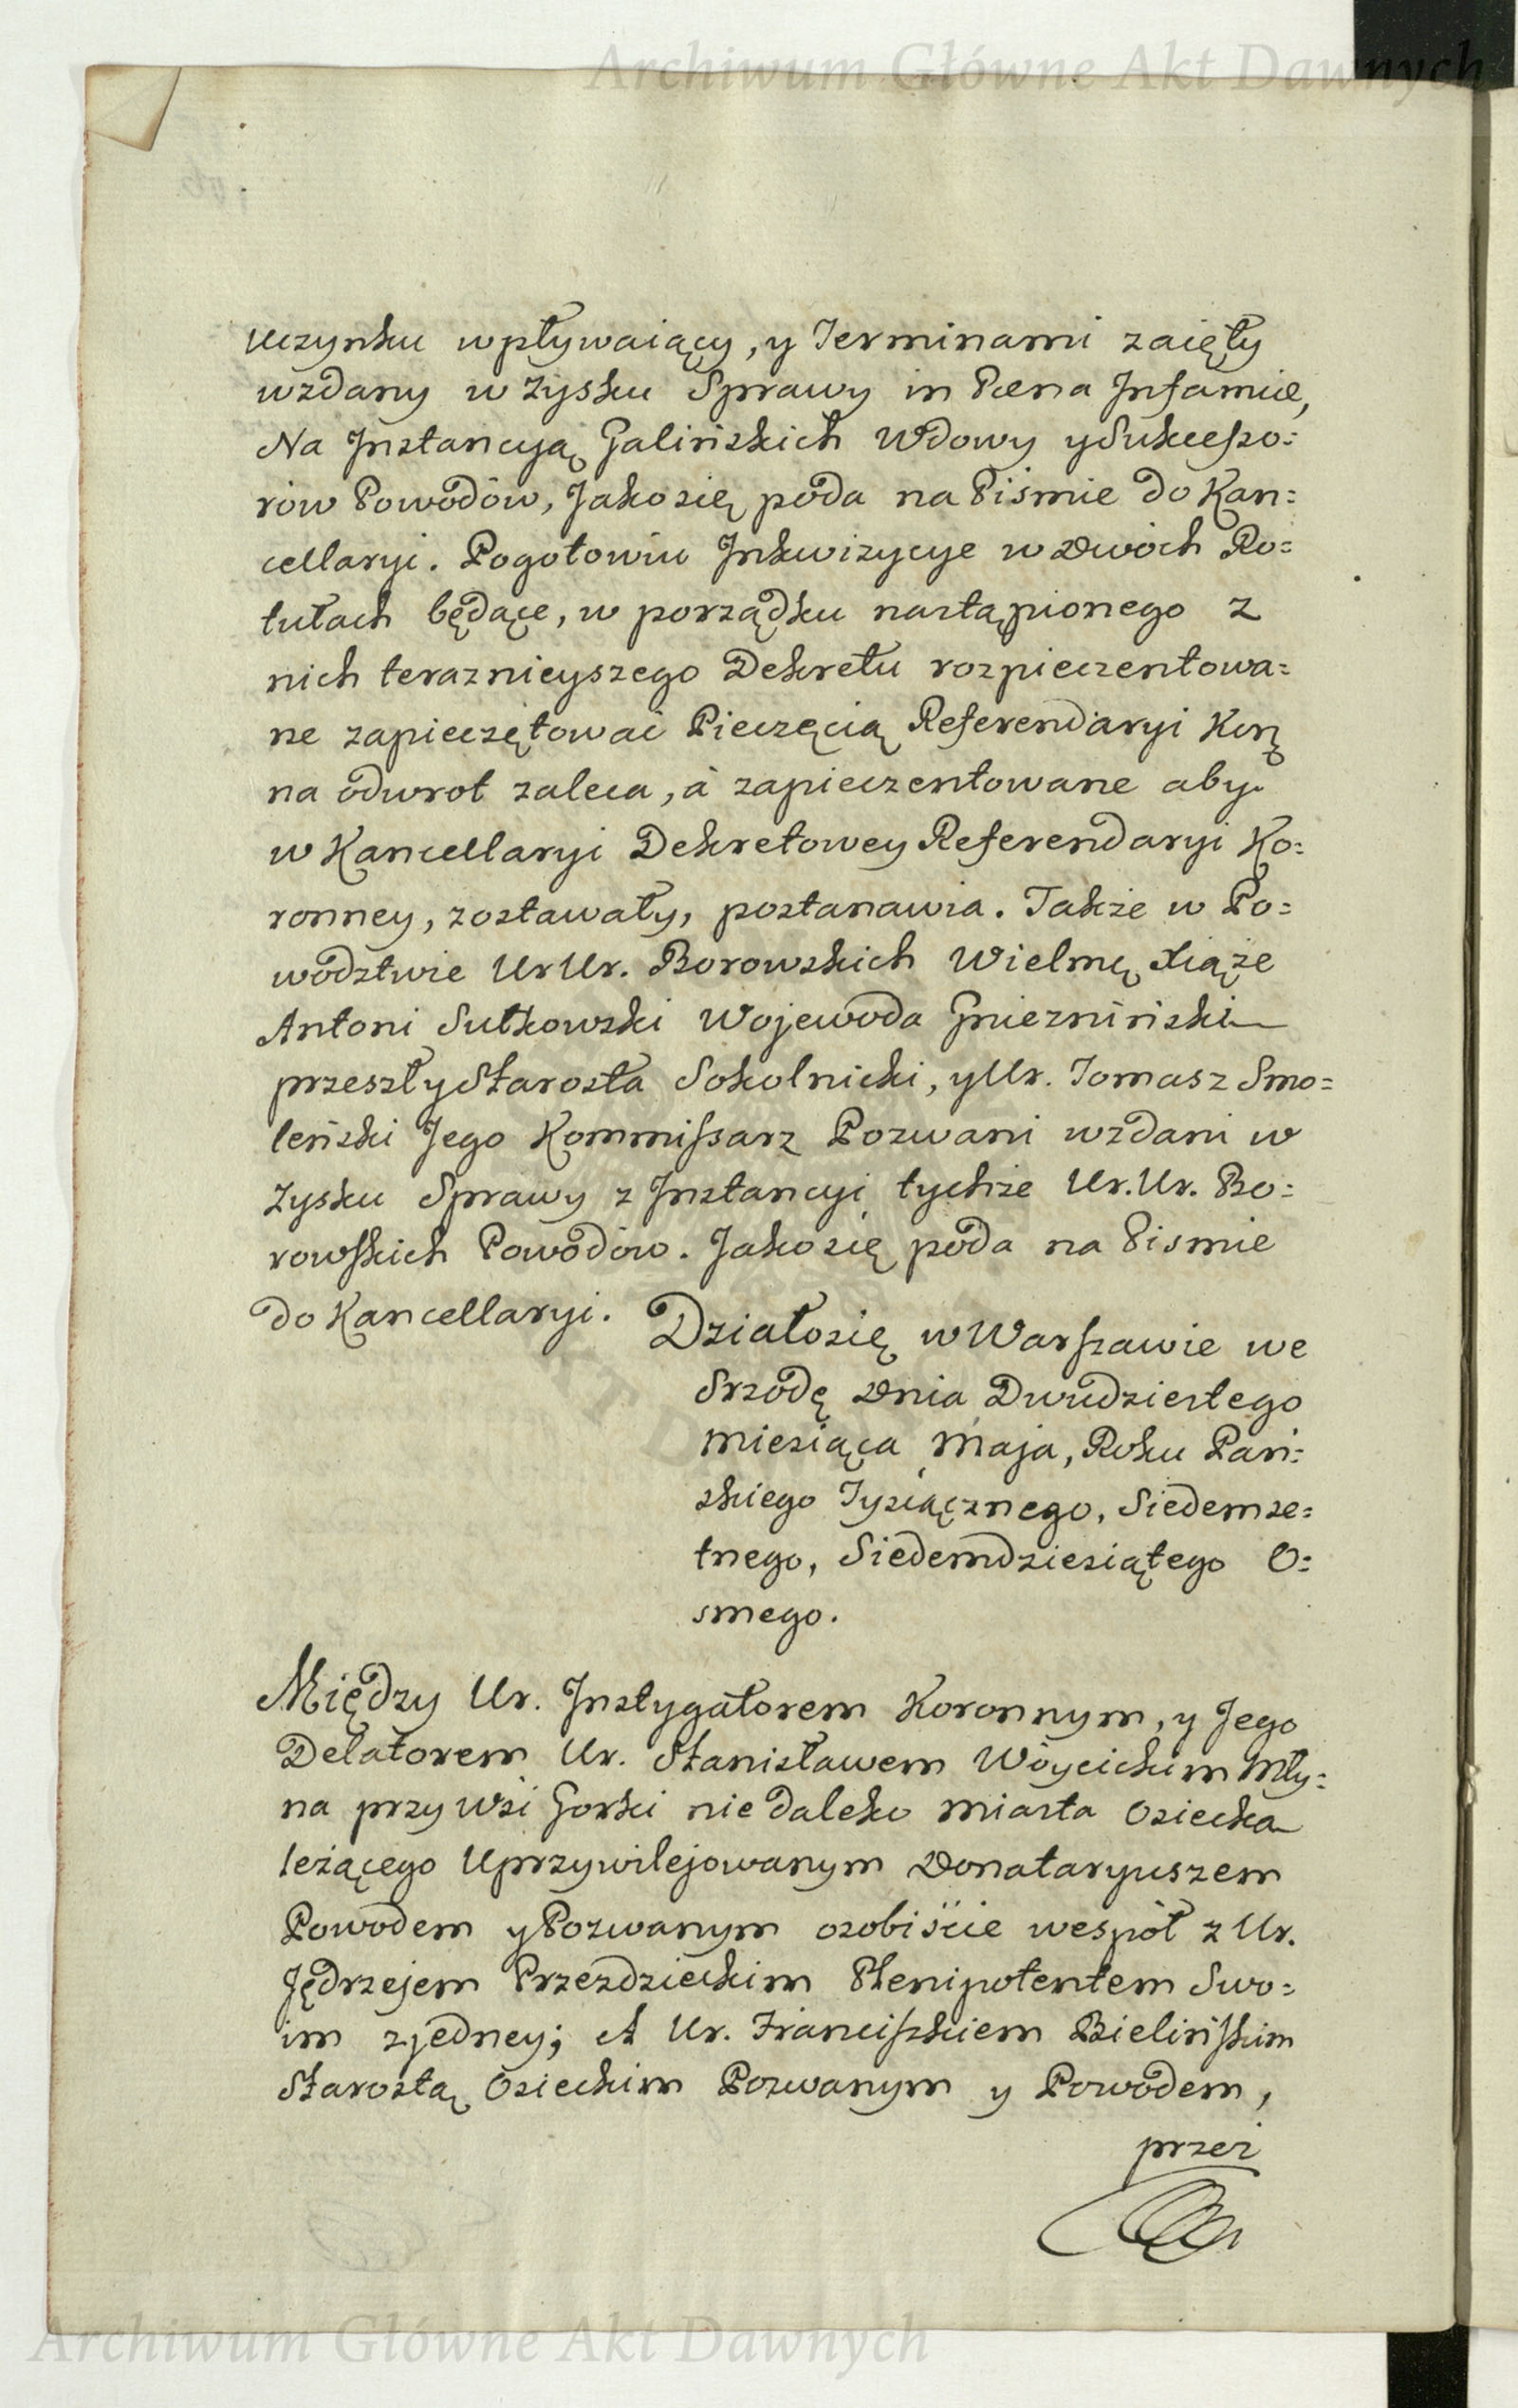 Archiwum Główne Akt Dawnych
uczynku wpływaiący, y Terminami zaięty
wzdany w zysku Sprawy in Pœna Infamiæ,
Na Jnstancyą Galińskich Wdowy y Sukcesso=
rów Powodów, Jako się poda na Pismie do Kan=
cellaryi. Pogotowiu Jnkwizycye w Dwóch Ro=
tułach będące, w porządku nastąpionego z
nich teraznieyszego Dekretu rozpieczentowa=
ne zapieczętować Pieczęcią Referendaryi Korą
na odwrot zaleca, à zapieczentowane aby
w Kancellaryi Dekretowey Referendaryi Ko=
ronney, zostawały, postanawia. Także w Po=
wodztwie Ur Ur. Borowskich Wielmę Xiąże
Antoni Sułkowski Wojewoda Gniezniński
przeszły Starosta Sokolnicki, y Ur. Tomasz Smo=
leński Jego Kommissarz Pozwani wzdani w
Zysku Sprawy z Jnstancyi tychże Ur. Ur. Bo=
rowskich Powodów. Jako się poda na Pismie
do Kancellaryi.
Działo się w Warszawie we
Srzodę Dnia Dwudziestego
miesiąca Maja, Roku Pań=
skiego Tysiącznego, Siedemse=
tnego, Siedemdziesiątego O=
smego.
Między Ur. Jnstygatorem Koronnym, y Jego
Delatorem Ur. Stanisławem Wóycickim Mły=
na przy Wsi Gorki nie daleko miasta Osiecka
leżącego Uprzywilejowanym Donataryuszem
Powodem y Pozwanym osobiście wespół z Ur.
Jędrzejem Przezdzieckim Plenipotentem Swo=
im z jedney; A Ur. Franciszkiem Bielińskim
Starostą Osieckim Pozwanym y Powodem,
przez
Archiwum Główne Akt Dawnych